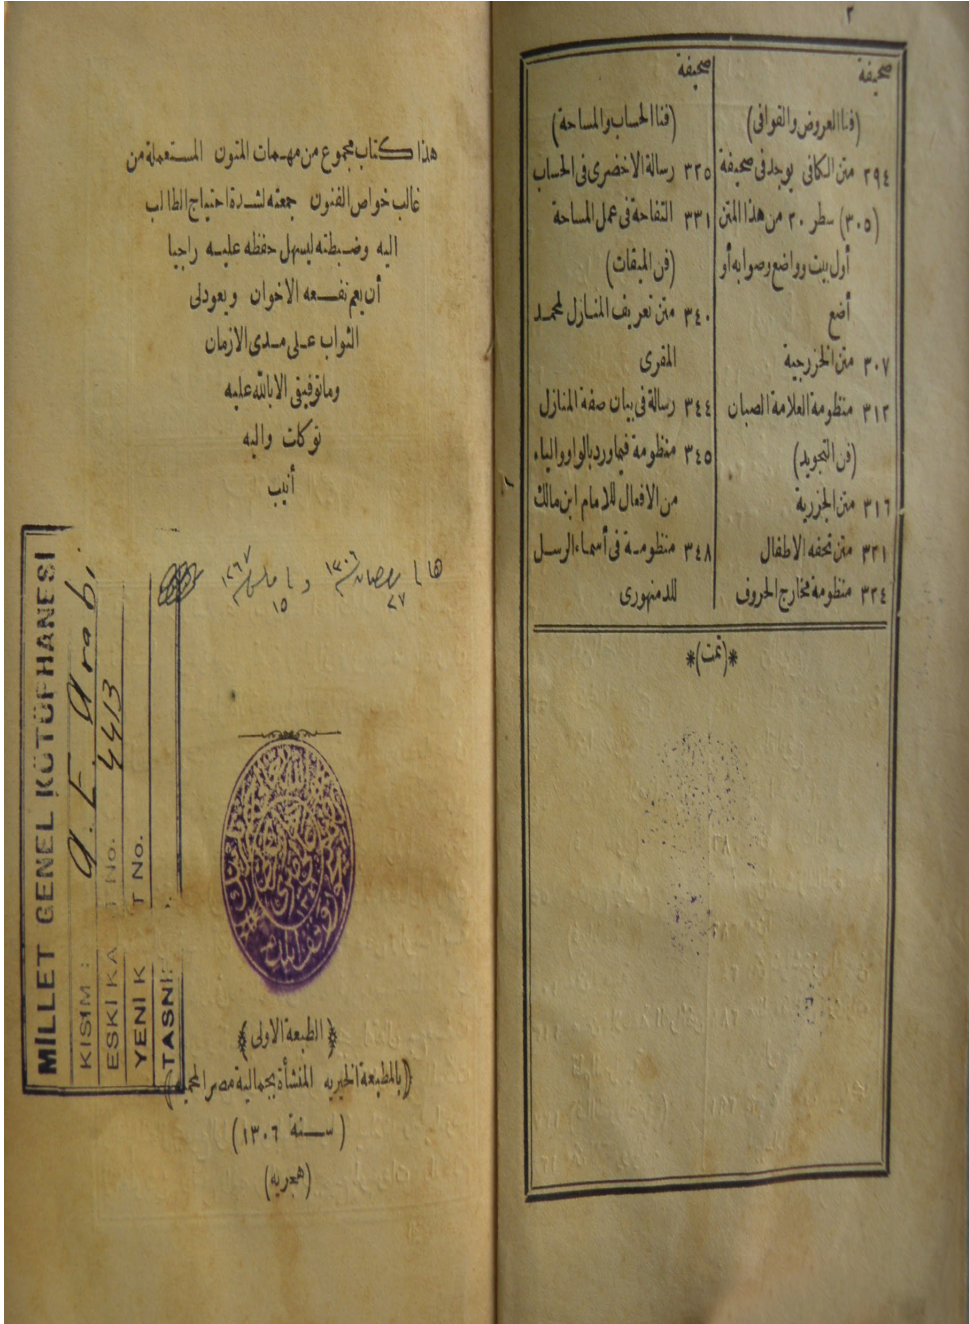 ٣
صحيفة
(فنا العروض والقوافى)
٢٩٤ متن الكافى يوجد فى صحيفة
(٣٠٥) سطر ٢٠ من هذا المتن
أول بيت وواضع وصوابه أو
أضع
٣٠٧ متن الخزرجية
٣١٢ منظومة العلامة الصبان
(فن التجويد)
٣١٦ متن الجزرية
٣٢١ متن تحفه الاطفال
٣٢٤ منظومة مخارج الحروف
صحيفة
(فنا الحساب والمساحة)
٣٢٥ رسالة الاخضرى فى الحساب
٣٣١ التفاحة فى عمل المساحة
(فن الميقات)
٣٤٠ متن تعريف المنازل لمحمد
المقرى
٣٤٤ رسالة فى بيان صفة المنازل
٣٤٥ منظومة فيما ورد بالواو والياء
من الافعال للامام ابن مالك
٣٤٨ منظومة فى أسماء الرسل
للدمنهورى
*(تمت)*
هذا كتاب مجموع من مهمات المتون المستعملة من
غالب خواص الفنون جمعته لشدة احتياج الطالب
اليه وضبطته ليسهل حفظه عليه راجيا
أن يعم نفعه الاخوان ويعود لى
الثواب على مدى الازمان
وما توفيقى الا بالله عليه
توكلت واليه
أنيب
(الطبعة الاولى)
(بالمطبعة الخيريه المنشأة بجمالية مصر المحميه)
(سنة ١٣٠٦)
(هجريه)
MİLLET GENEL KÜTÜPHANESİ
KISIM : A. E. Arabi
ESKİ KAYIT No. 4413
YENİ KAYIT No.
TASNİF